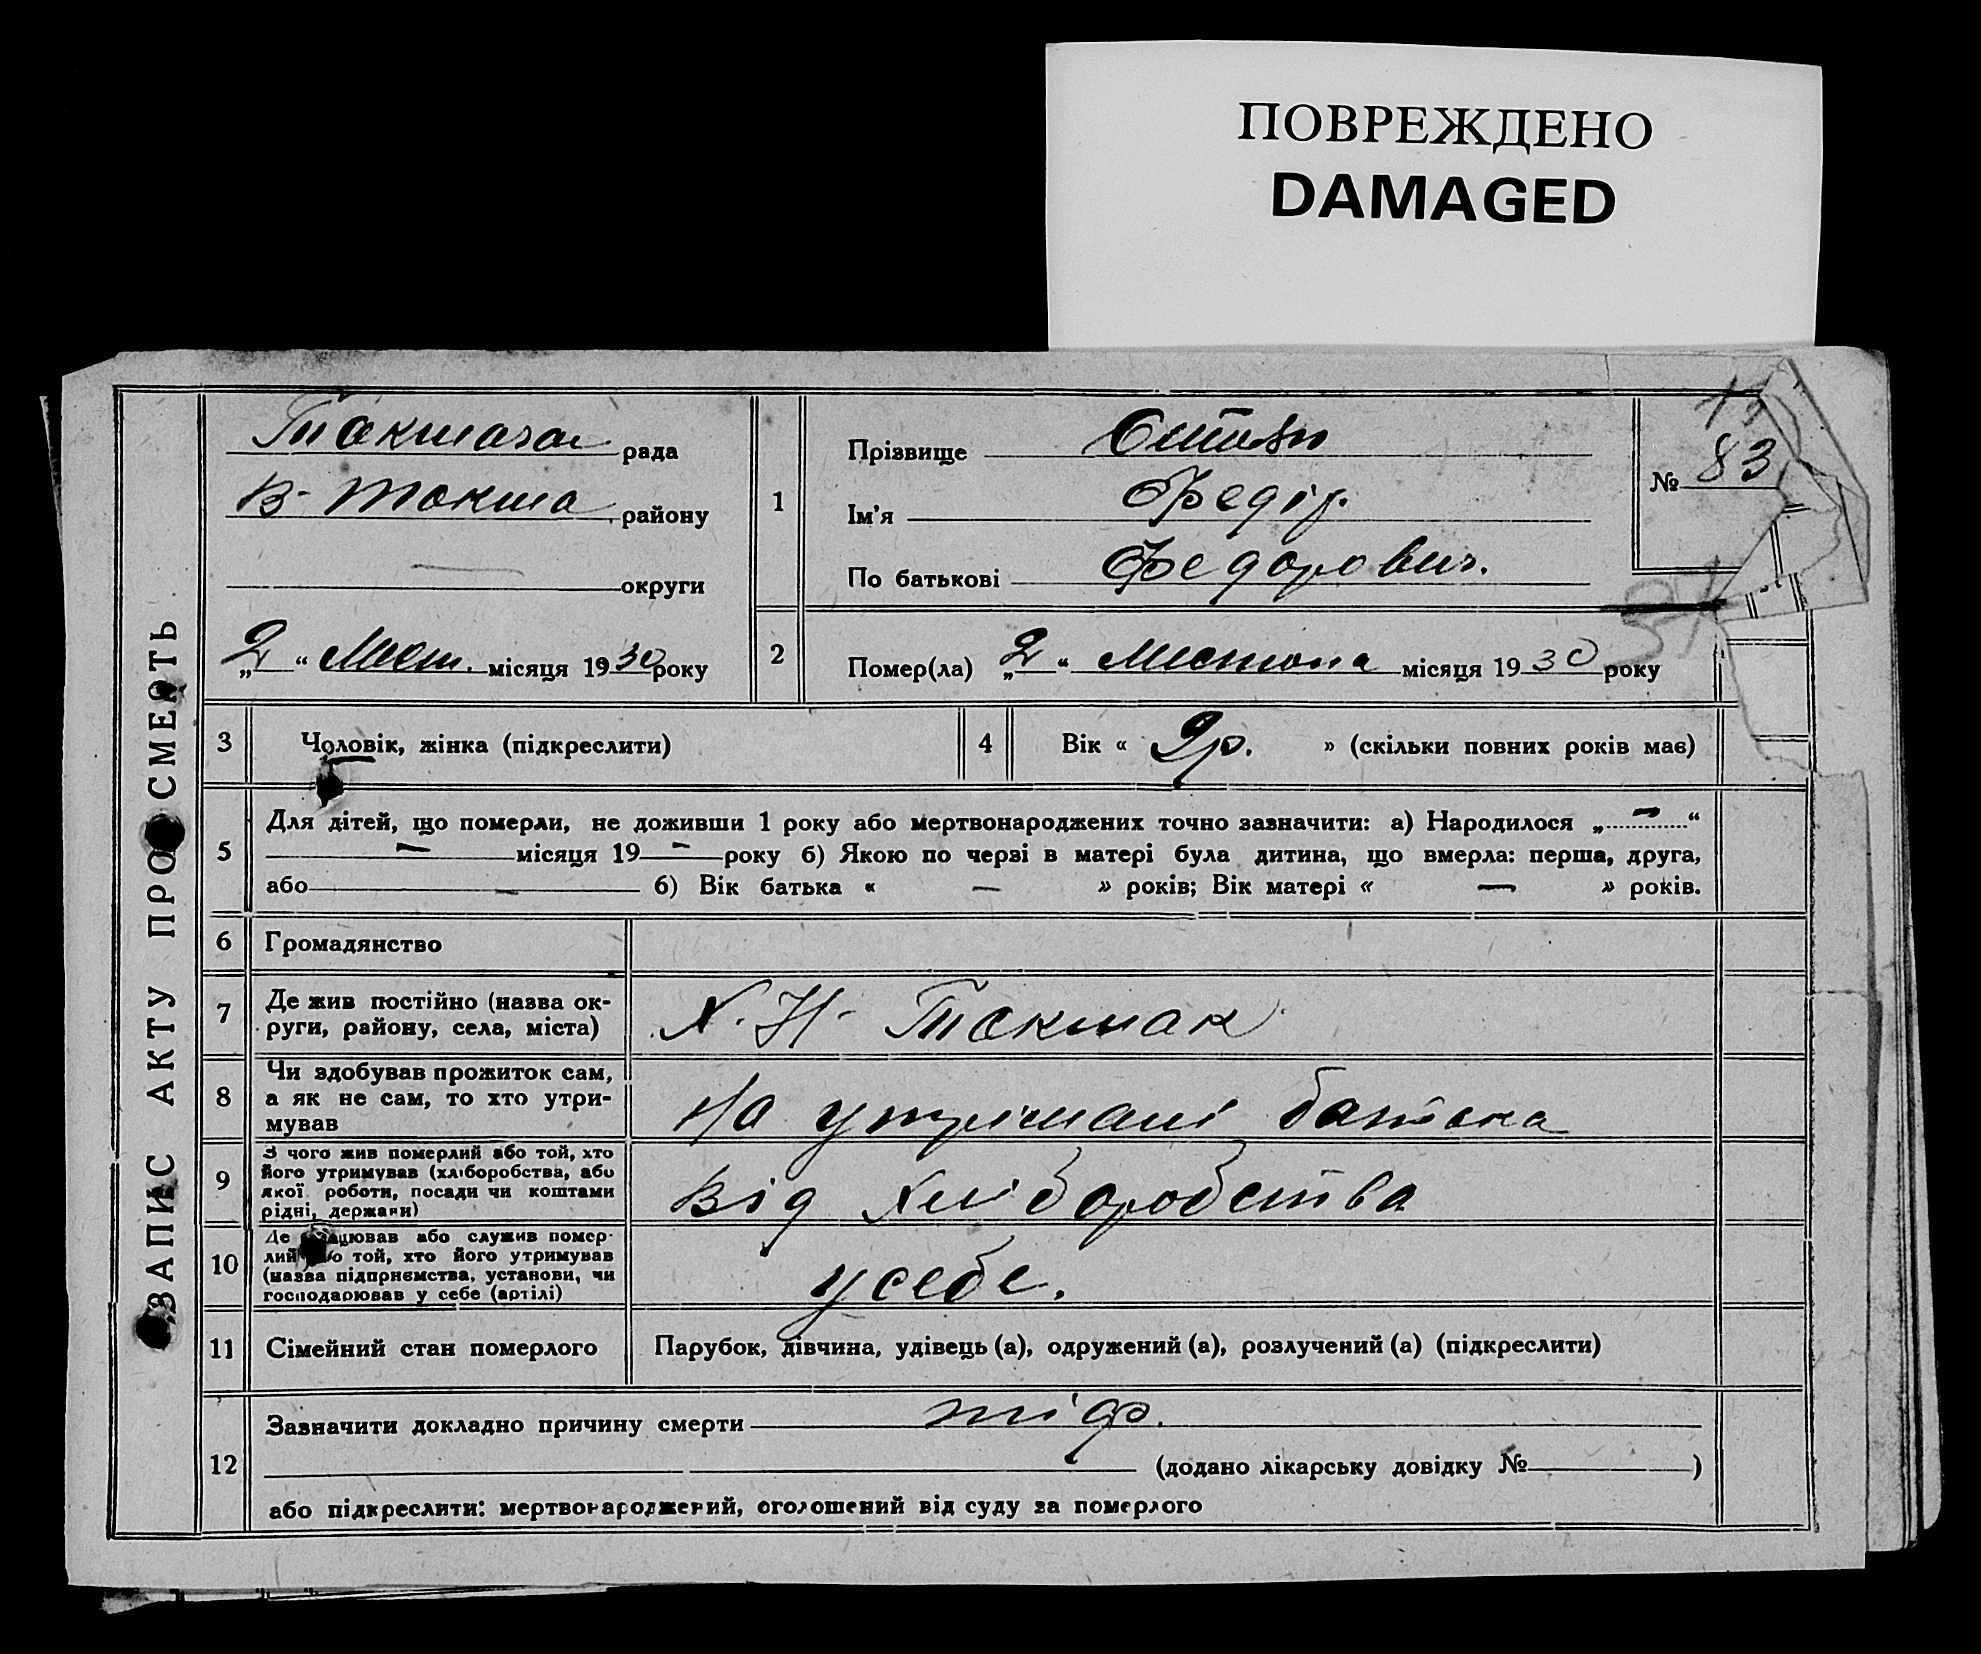 ПОВРЕЖДЕНО
DAMAGED
ЗАПИС АКТУ ПРО СМЕРТЬ
рада
В- Токма району
округи
„2“ місяця 1930 року
1
Прізвище
Ім'я Федір.
По батькові Федорович.
№ 83
2
Помер(ла) „2“ місяця 1930 року
3
Чоловік, жінка (підкреслити)
4
Вік « 9р. » (скільки повних років має)
5
Для дітей, що померли, не доживши 1 року або мертвонароджених точно зазначити: а) Народилося „ – “
– місяця 19 – року б) Якою по черзі в матері була дитина, що вмерла: перша, друга,
або – б) Вік батька « – » років; Вік матері « – » років.
6
Громадянство
7
Де жив постійно (назва ок-
руги, району, села, міста)
Х. Н- Токмак
8
Чи здобував прожиток сам,
а як не сам, то хто утри-
мував
На утрімані батька
9
З чого жив померлий або той, хто
його утримував (хліборобства, або
якої роботи, посади чи коштами
рідні, держави)
Від хліборобства
10
Де працював або служив помер-
лий або той, хто його утримував
(назва підприємства, установи, чи
господарював у себе (артілі)
у себе.
11
Сімейний стан померлого
Парубок, дівчина, удівець (а), одружений (а), розлучений (а) (підкреслити)
12
Зазначити докладно причину смерти тіф.
(додано лікарську довідку № )
або підкреслити: мертвонароджений, оголошений від суду за померлого